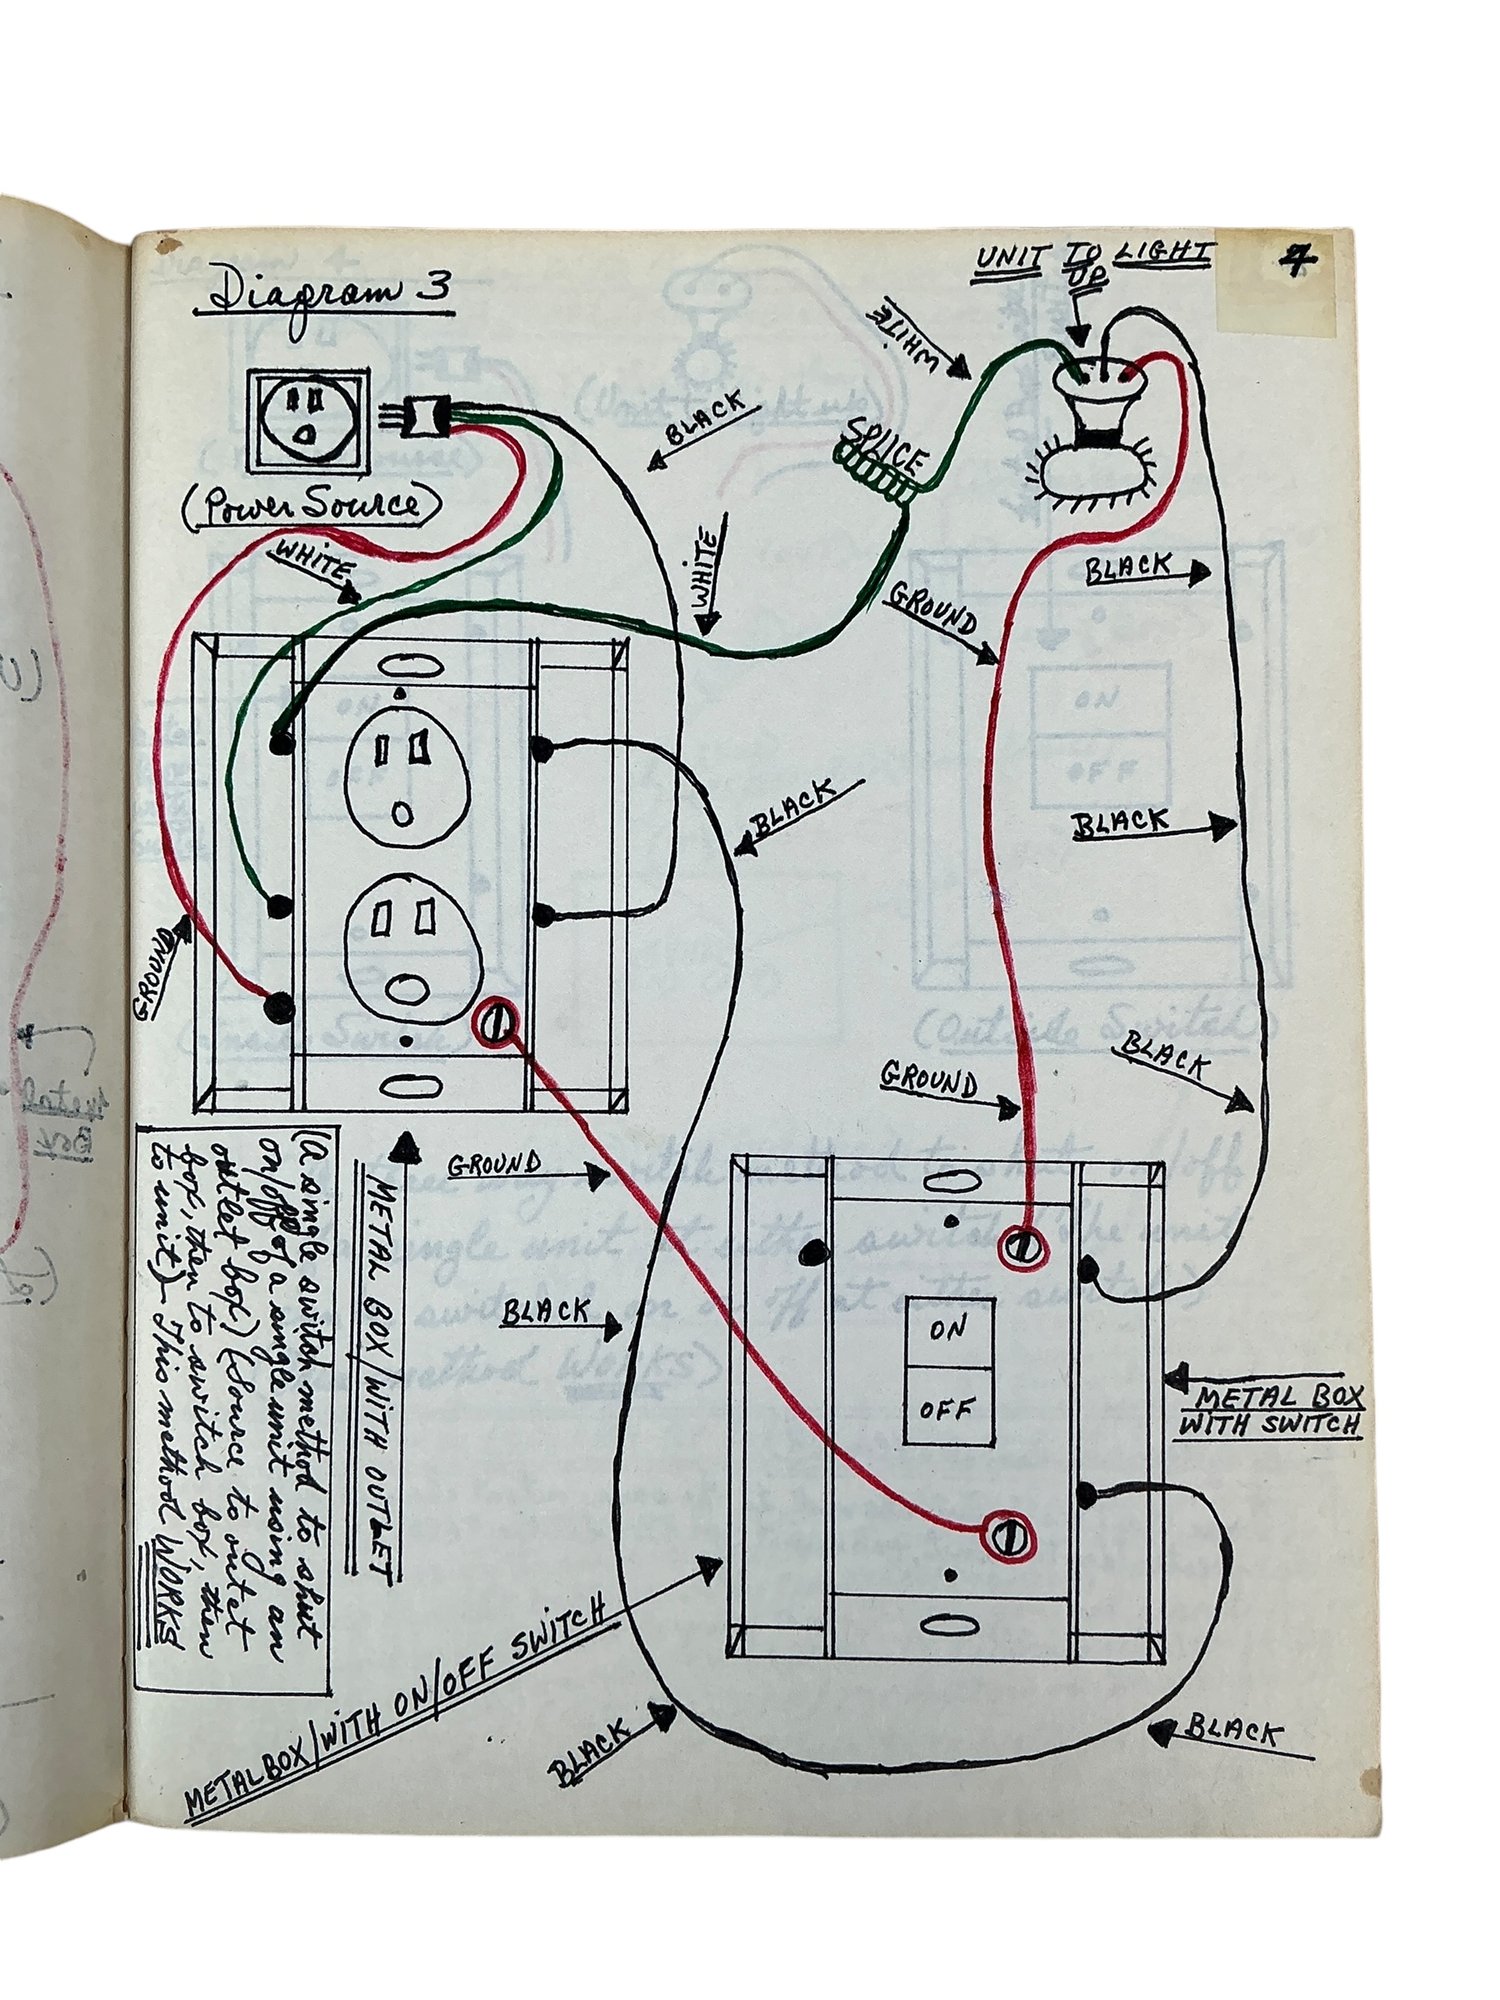 Diagram 3
UNIT TO LIGHT
UP
4
WHITE
BLACK
SPLICE
(Power Source)
WHITE
WHITE
BLACK
GROUND
BLACK
BLACK
GROUND
BLACK
GROUND
GROUND
BLACK
METAL BOX/WITH OUTLET
(A single switch method to shut
on/off of a single unit using an
outlet box) (Source to outlet
box, then to switch box, then
to unit) - This method WORKS
ON
OFF
METAL BOX
WITH SWITCH
METAL BOX/WITH ON/OFF SWITCH
BLACK
BLACK